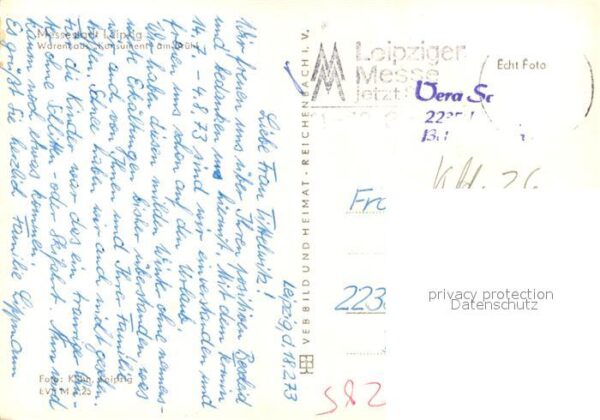 Messestadt Leipzig
Warenhaus "Konsument" am Brühl
Leipzig, d. 18.2.73
Liebe Frau Tittelwitz!
Wir freuen uns über Ihren positiven Bescheid
und bedanken uns hiermit. Mit dem Termin
14.7. - 4.8.73 sind wir einverstanden und
freuen uns schon auf den Urlaub.
Wir haben diesen milden Winter ohne nennens-
werte Erkältungen bisher überstanden, was
wir auch von Ihnen und Ihrer Familie
hoffen. Schnee haben wir auch nicht gesehen.
Für die Kinder war dies ein trauriger Win-
ter ohne Schlitten- oder Skifahrt. Nun wird
kaum noch etwas kommen.
Es grüßt Sie herzlich Familie Oppmann
Foto: Kühn, Leipzig
VEB BILD UND HEIMAT · REICHENBACH I. V.
Leipziger
Messe
jetzt
Echt Foto
Vera Sc
Fra
223
privacy protection
Datenschutz